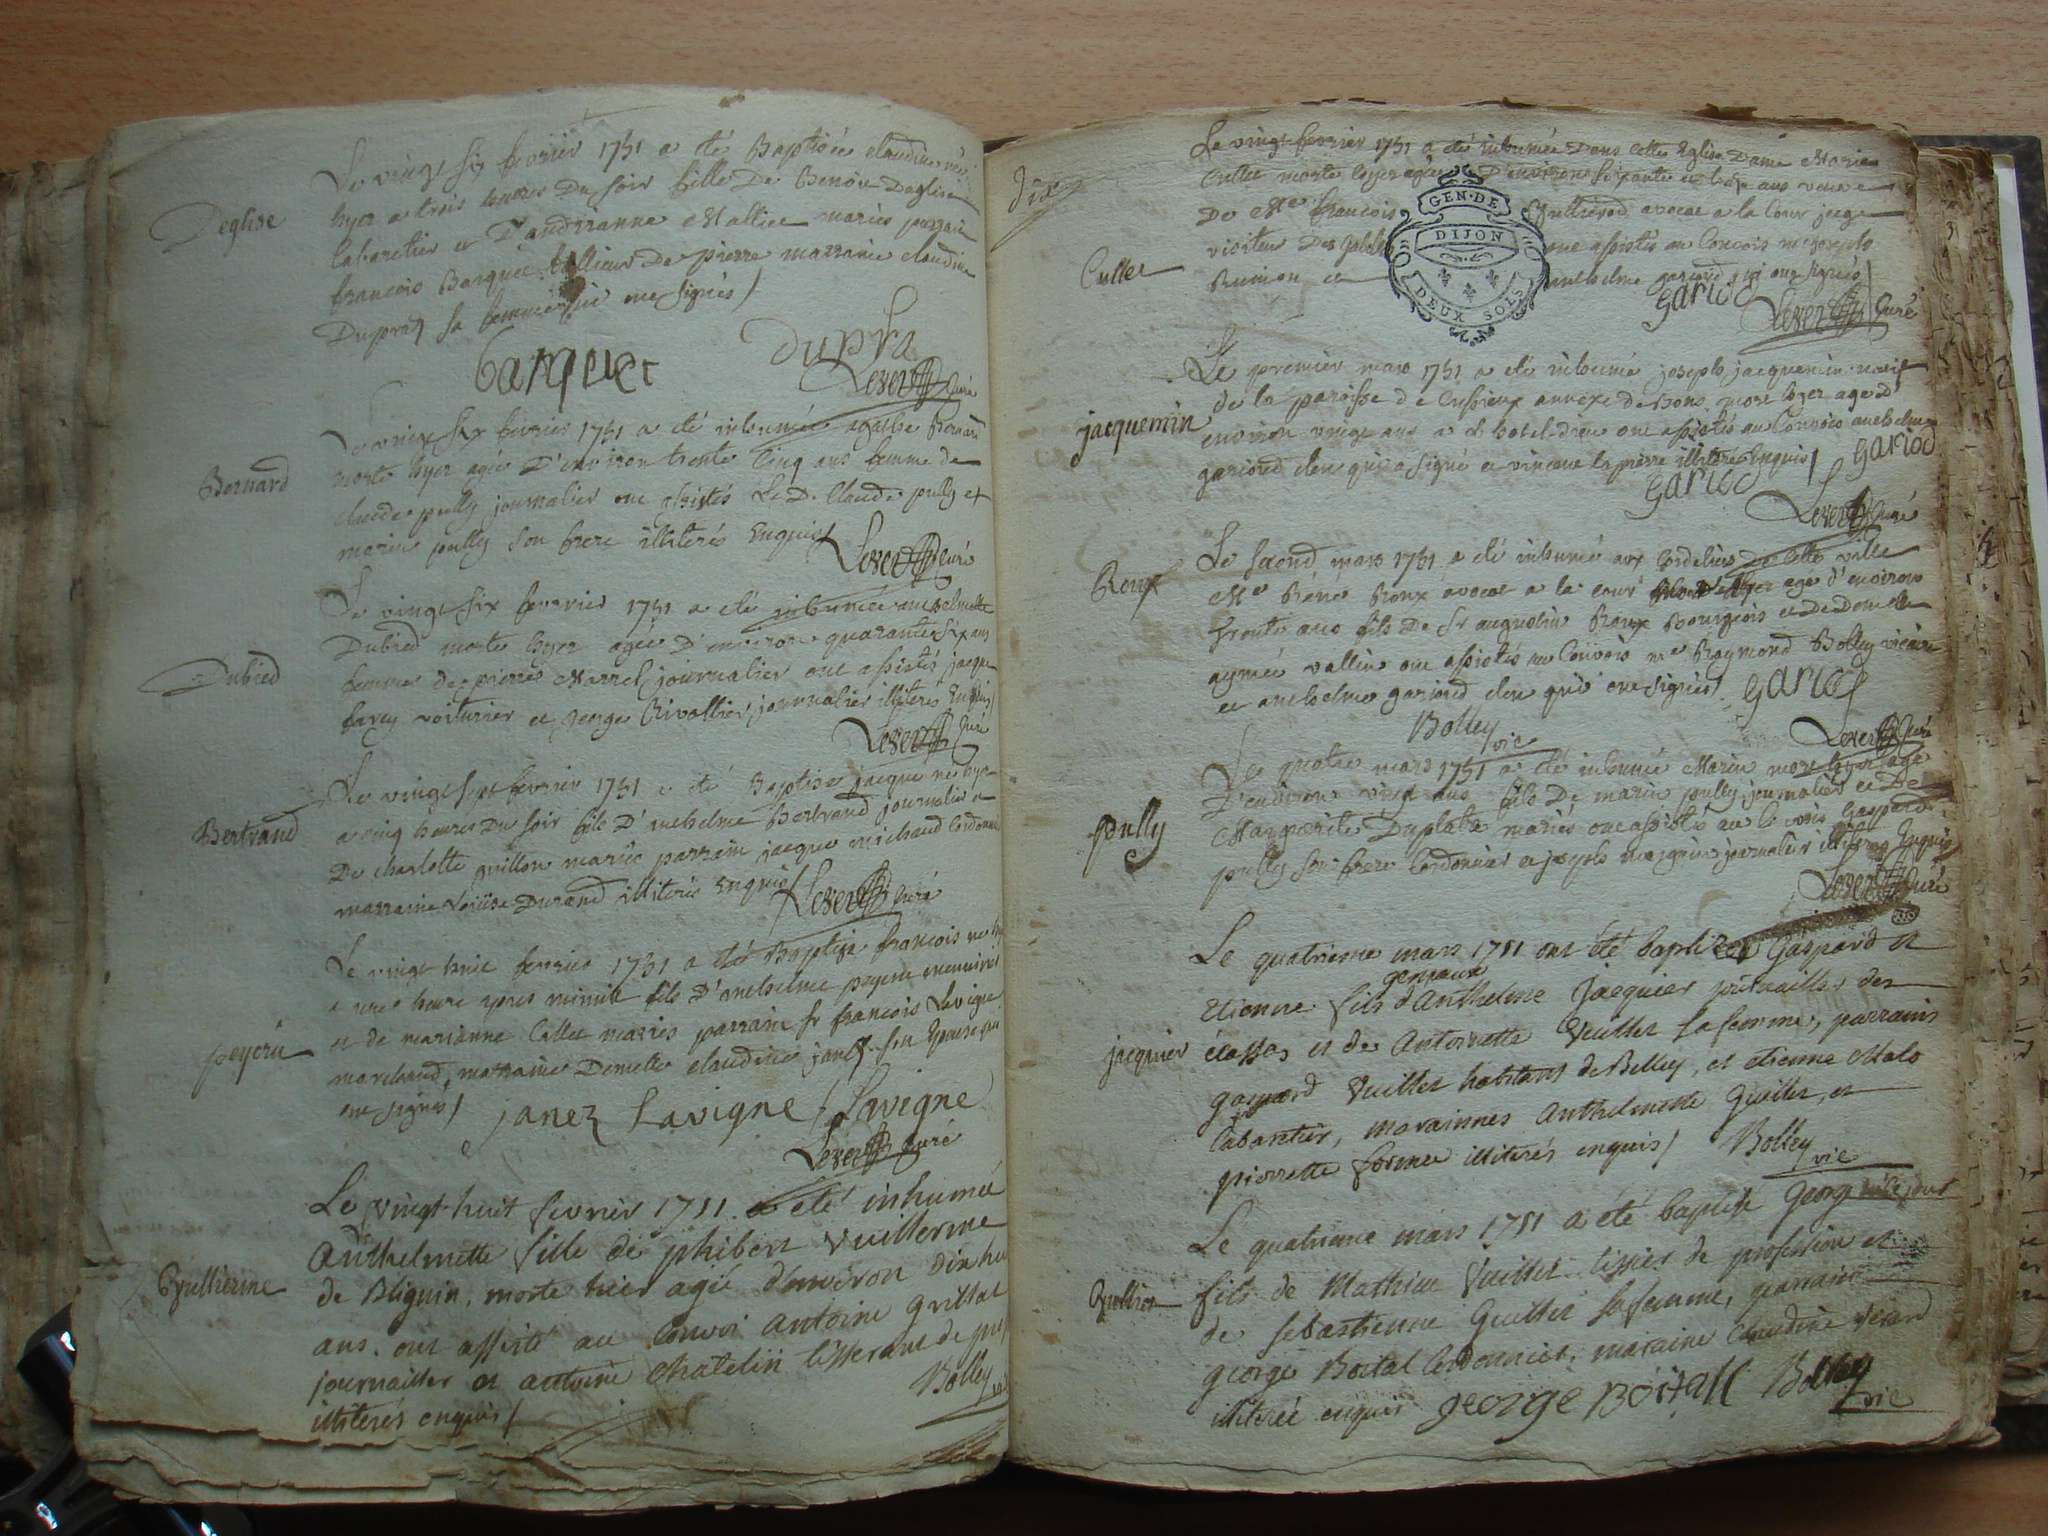 Deglise
Le vingt six fevrier 1751 a été Baptisée claudine née
hyer a trois heures Du soir fille De Benoit Deglise
Cabaretier et D'andrianne Mallier mariés parrain
francois Barquet tallieur De pierre marraine claudine
Duprat sa femme qui ont signés /
barquet Dupra
Leverff Curé
Bernard
Le vingt six fevrier 1751 a été inhumée agathe Bernard
morte hyer agée D'environ trente Cinq ans femme de
claude pully journalier ont assistés Le D. Claude pully et
marin pully son frere illiterés Enquis /
Leverff Curé
Dubied
Le vingt six fevrier 1751 a été inhumée anthelmette
Dubied morte hyer agée D'environ quarante six ans
femme de pierre Marrel journalier ont assistés jacque
farey voiturier et george Rivollier journalier illiteres Enquis /
Leverff Curé
Bertrand
Le vingt sept fevrier 1751 a été Baptisé jacque né hyer
a cinq heures Du soir fils D'anthelme Bertrand journalier et
De charlotte guillon mariés parrain jacque michaud Cordonnier
marraine Loüise Durand illiterés Enquis /
Leverff Curé
peycru
Le vingt huit fevrier 1751 a été Baptisé francois né hyer
a une heure apres minuit fils D'anthelme peycru
et de marianne Callet mariés parrain sr francois Lavigne
marchand, marraine Demelle claudine janez son Epouse qui
ont signés / janez Lavigne / Lavigne
Leverff Curé
Vullierme
Le vingt-huit fevrier 1751 a été inhumée
Anthelmette fille de phibert Vuillerme
de Bliguin, morte hier agée d'environ dix hu
ans. ont assisté au Convoi Antoine Grillat
journallier et antoine Chatelin tisserant de
illiterés enquis / Bolley vic
Dix
Cullet
Le vingt fevrier 1751 a été inhumée Dans cette Eglise Dame Marie
Cullet morte hyer agée D'environ soixante et ans veuve
De Me francois avocat a la Cour juge
visiteur Des gabelles ont assistés au Convois me joseph
et anthelme gariod qui ont signés /
GEN. DE
DIJON
DEUX SOLS
gariod
Leverff Curé
jacquemin
Le premier mars 1751 a été inhumé joseph jacquemin natif
de la paroisse de Cussieux annexe de mort hyer agé d
environ vingt ans a l'hotel-dieu ont assistés au Convois anthelme
gariod clerc qui a signé et vincent lapierre illiteré Enquis / gariod
gariod
Leverff Curé
Roux
Le second mars 1751 a été inhumé aux Cordeliers De Cette ville
Me René Roux avocat a la cour agé d'environ
trente ans fils De Sr augustin Roux Bourgeois et De Demelle
aymée vallin ont assistés au Convois me Raymond Bolley vicaire
et anthelme gariod clerc qui ont signés / gariod
Bolley vic
Leverff Curé
pully
Le quatre mars 1751 a été inhumé Marin mort hyer agé
D'environ vingt ans fils De marin pully journalier et De
Margueritte Duplatre mariés ont assistés au Convois Gaspard
pully son frere Cordonnier et joseph journalier illiterés Enquis
Leverff Curé
jacquier
Le quatrieme mars 1751 ont été baptizés Gaspard et
gemeaux
Etienne fils d'Anthelme Jacquier journallier des
écasses et de Antoinette Vuillet sa femme, parrains
gaspard Vuillet habitant de Belley, et etienne Malo
Cabaretier, marainnes Anthelmette Guillet, et
pierrette fornier illiterés enquis / Bolley vic
Vullliet
Le quatrieme mars 1751 a été baptisé George né ce jour
fils de Mathieu Vuillet tissier de profession et
de sebastienne Guillet sa femme, parrain
george Boital Cordonnier, maraine claudine Jean
illiterée enquise george Boitall Bolley vic